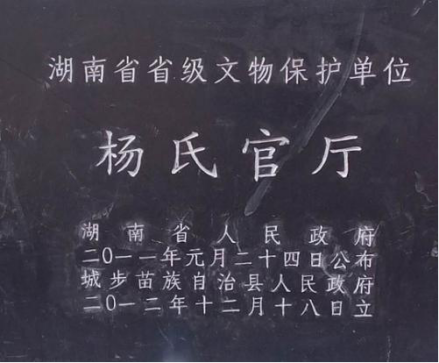 湖南省省级文物保护单位
杨氏官厅
湖南省人民政府
二〇一一年元月二十四日公布
城步苗族自治县人民政府
二〇一二年十二月十八日立